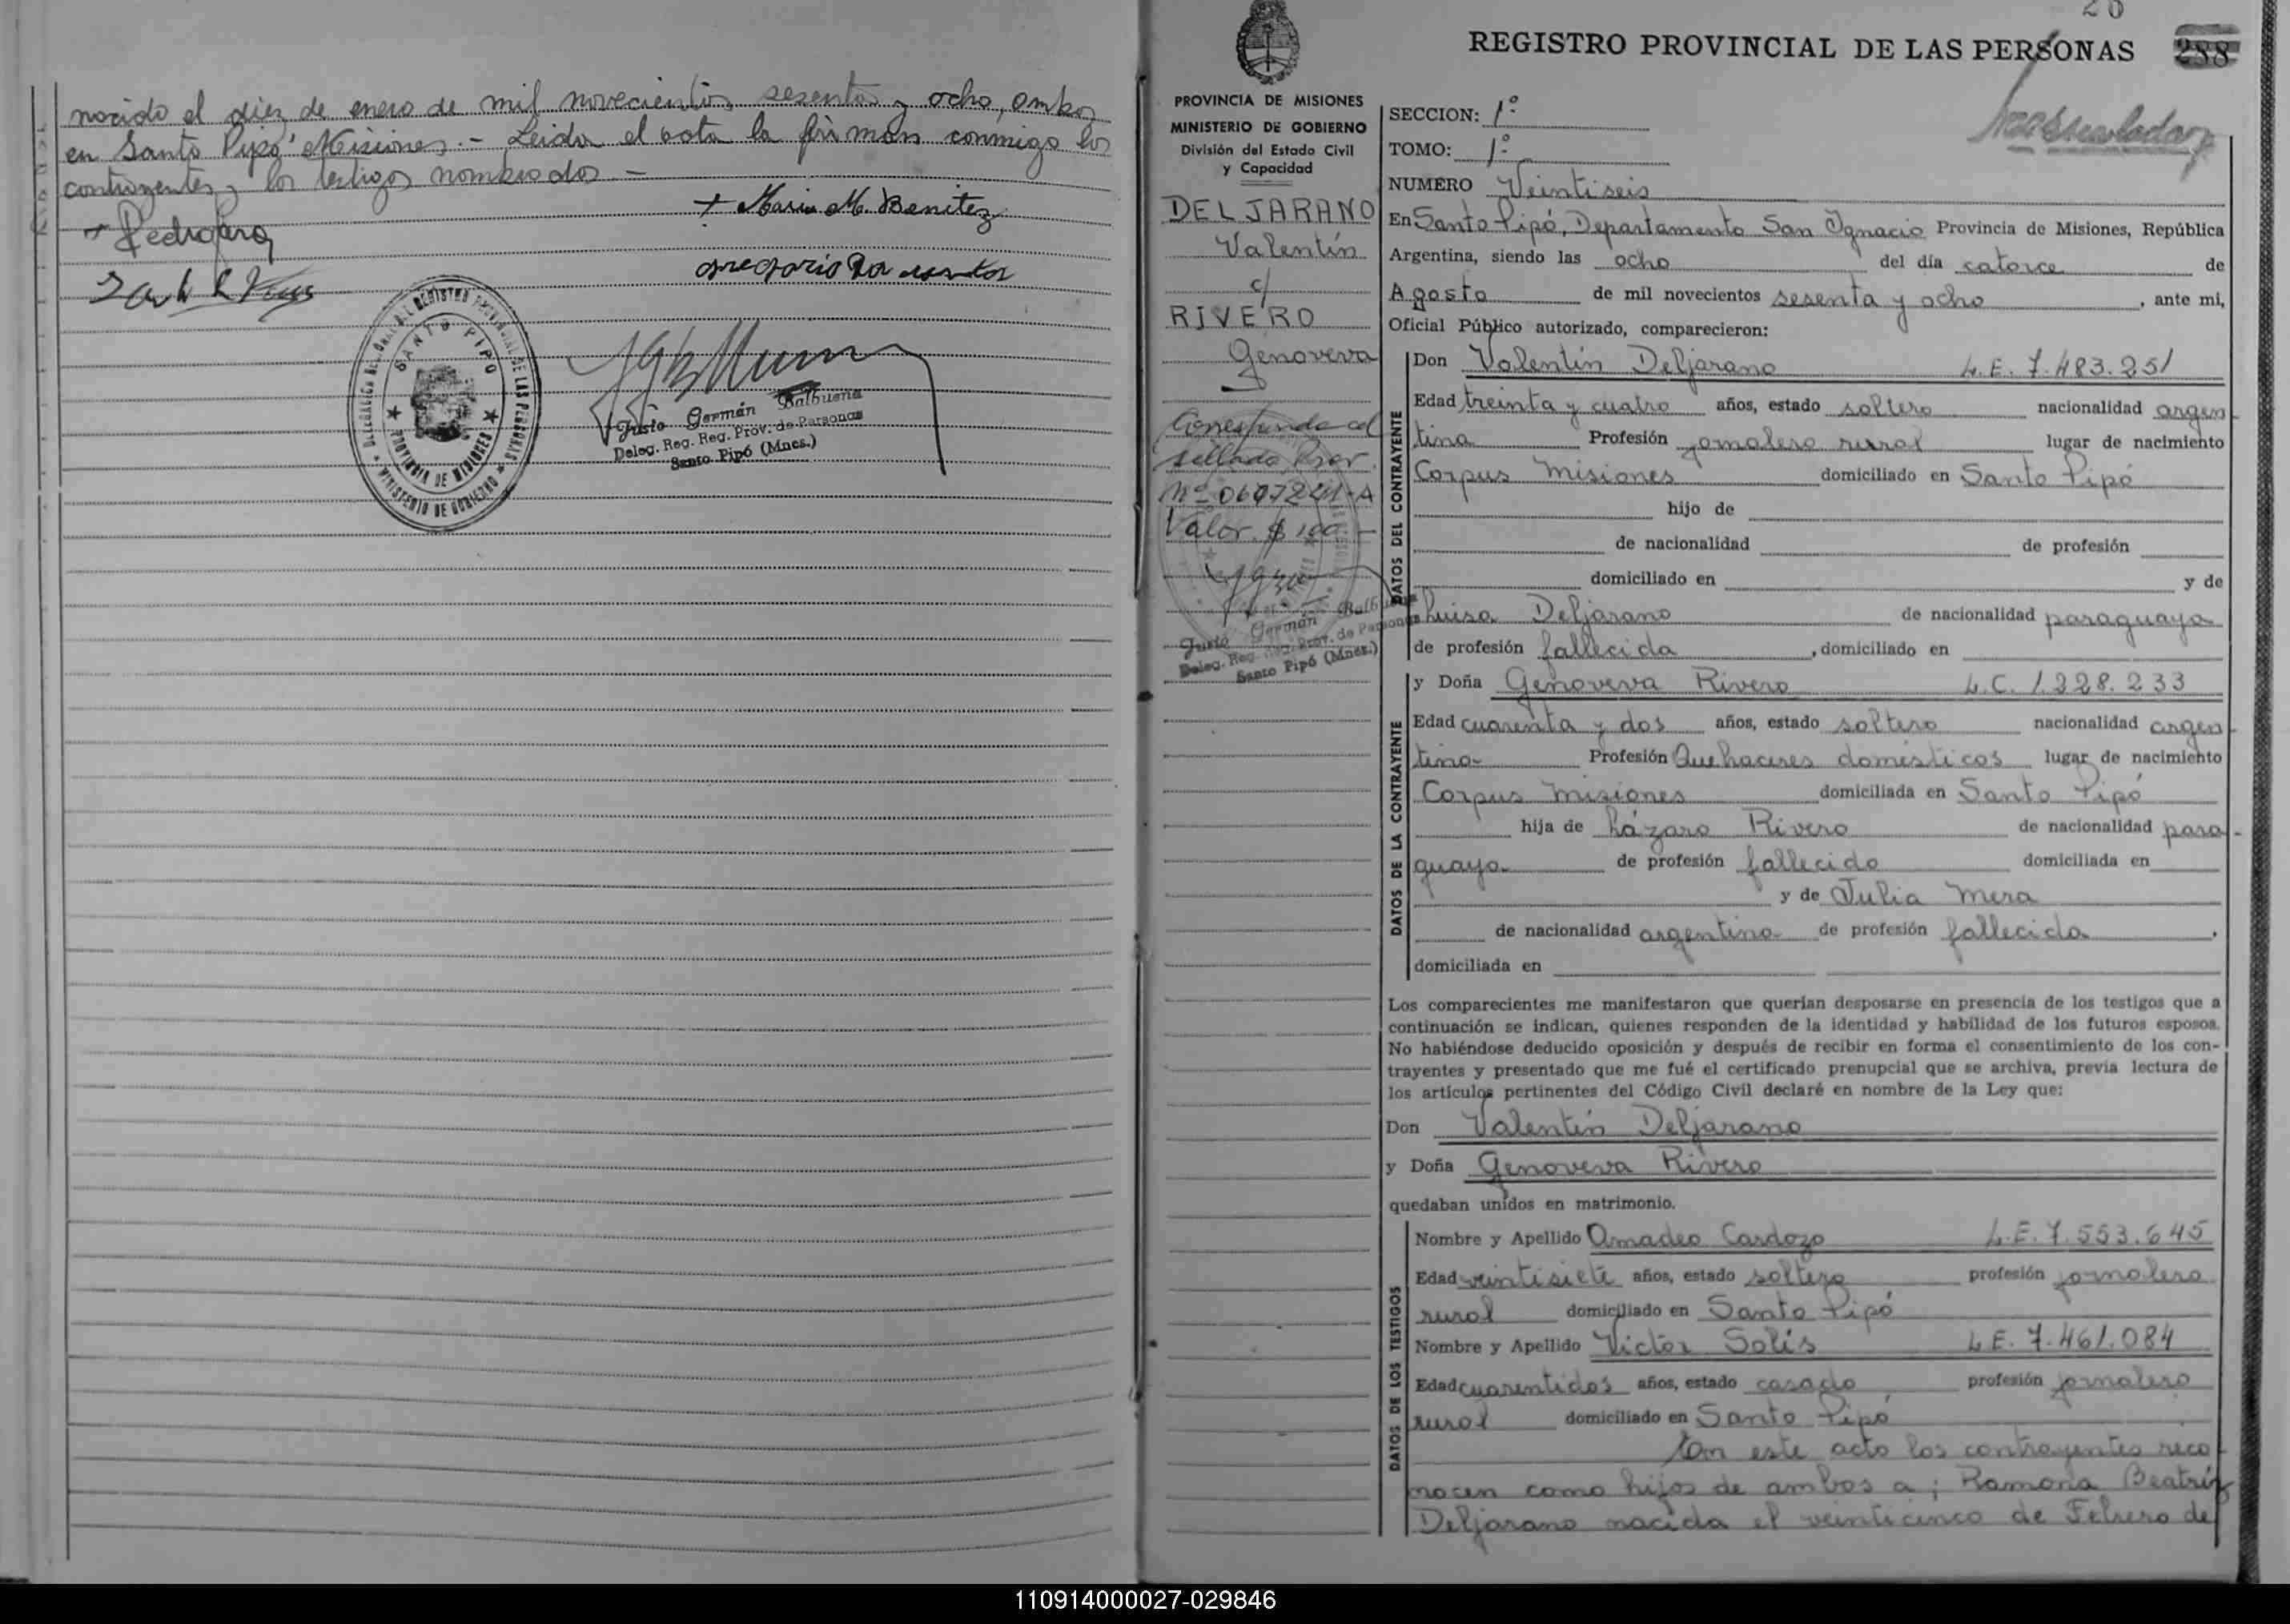 nacido el diez de enero de mil novecientos sesenta y ocho, ambos
en Santo Pipó Misiones.- Leida el acta la firman conmigo los
contrayentes y los testigos nombrados -
+ Maria M. Benitez
Gregorio
DELEGACION DEL REGISTRO PROVINCIAL DE LAS PERSONAS
SANTO PIPO
PROVINCIA DE MISIONES
MINISTERIO DE GOBIERNO
Justo Germán Balbuena
Deleg. Reg. Reg. Prov. de Personas
Santo Pipó (Mnes.)
REGISTRO PROVINCIAL DE LAS PERSONAS 288
PROVINCIA DE MISIONES
MINISTERIO DE GOBIERNO
División del Estado Civil
y Capacidad
DELJARANO
Valentín
c/
RIVERO
Genoveva
Corresponde al
sellado Prov.
Nº 0607241-A
Valor $ 100.-
Justo Germán Balbuena
Deleg. Reg. Reg. Prov. de Personas
Santo Pipó (Mnes.)
SECCION: 1º
TOMO: 1º
NUMERO Veintiseis
En Santo Pipó, Departamento San Ignacio Provincia de Misiones, República
Argentina, siendo las ocho del día catorce de
Agosto de mil novecientos sesenta y ocho, ante mi,
Oficial Público autorizado, comparecieron:
DATOS DEL CONTRAYENTE
Don Valentín Deljarano L.E. 7.483.251
Edad treinta y cuatro años, estado soltero nacionalidad argen
tina Profesión jornalero rural lugar de nacimiento
Corpus Misiones domiciliado en Santo Pipó
hijo de
de nacionalidad de profesión
domiciliado en y de
Luisa Deljarano de nacionalidad paraguaya
de profesión fallecida, domiciliado en
DATOS DE LA CONTRAYENTE
y Doña Genoveva Rivero L.C. 1.228.233
Edad cuarenta y dos años, estado soltero nacionalidad argen
tina Profesión Quehaceres domésticos lugar de nacimiento
Corpus Misiones domiciliada en Santo Pipó
hija de Lázaro Rivero de nacionalidad para-
guaya de profesión fallecido domiciliada en
y de Julia Mera
de nacionalidad argentina de profesión fallecida,
domiciliada en
Los comparecientes me manifestaron que querían desposarse en presencia de los testigos que a
continuación se indican, quienes responden de la identidad y habilidad de los futuros esposos.
No habiéndose deducido oposición y después de recibir en forma el consentimiento de los con-
trayentes y presentado que me fué el certificado prenupcial que se archiva, previa lectura de
los artículos pertinentes del Código Civil declaré en nombre de la Ley que:
Don Valentín Deljarano
y Doña Genoveva Rivero
quedaban unidos en matrimonio.
DATOS DE LOS TESTIGOS
Nombre y Apellido Amadeo Cardozo L.E. 7.553.645
Edad veintisiete años, estado soltero profesión jornalero
rural domiciliado en Santo Pipó
Nombre y Apellido Victor Solís L.E. 7.461.084
Edad cuarentidos años, estado casado profesión jornalero
rural domiciliado en Santo Pipó
En este acto los contrayentes reco
nocen como hijos de ambos a; Ramona Beatríz
Deljarano nacida el veinticinco de Febrero de
110914000027-029846